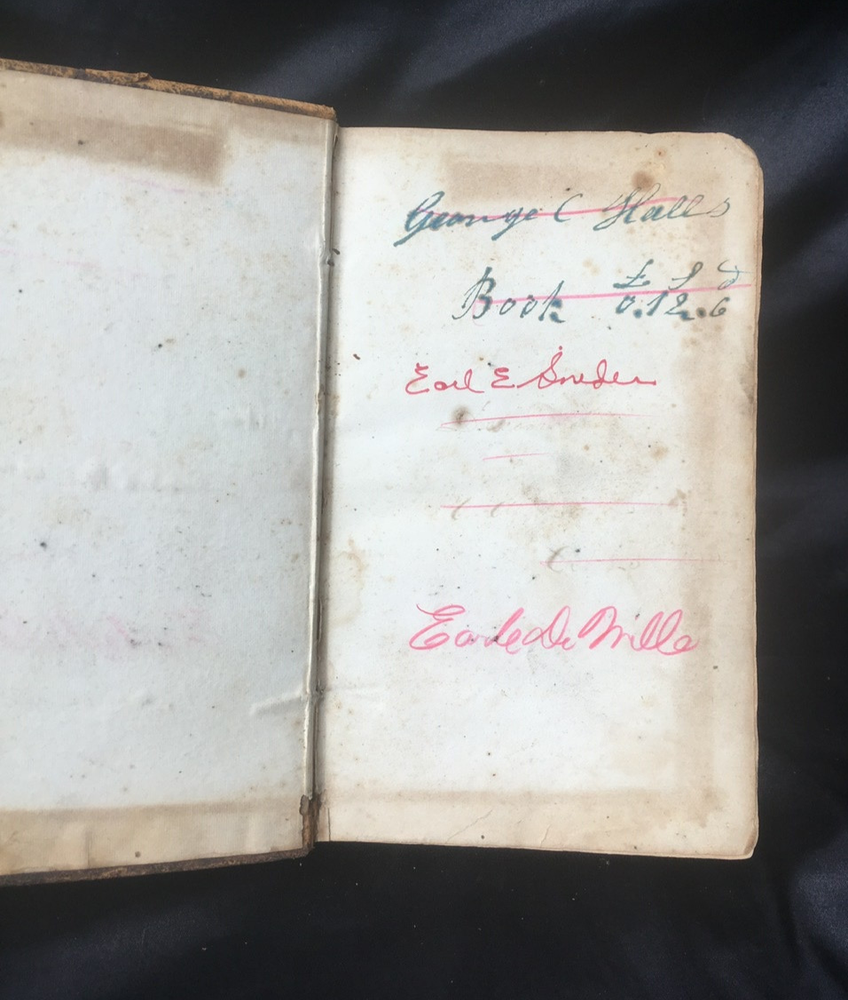 George C Halls
£ S d
Book 0.12.6
Earl E Snider
Earle De Mille